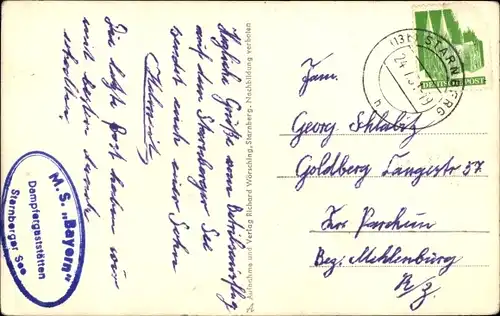 Die letzte Post haben wir
mit bestem Dank
erhalten
Herzliche Grüße vom Betriebsausflug
auf dem Starnberger See
sendet euch euer Sohn
Heinrich
M.S. „Bayern"
Dampfergaststätten
Starnberger See
Aufnahme und Verlag Richard Wörsching, Starnberg. Nachbildung verboten
(13b) STARNBERG
DEUTSCHE POST
Fam.
Georg Schlabitz
Goldberg Langestr 57
Krs Parchim
Bez. Meklenburg